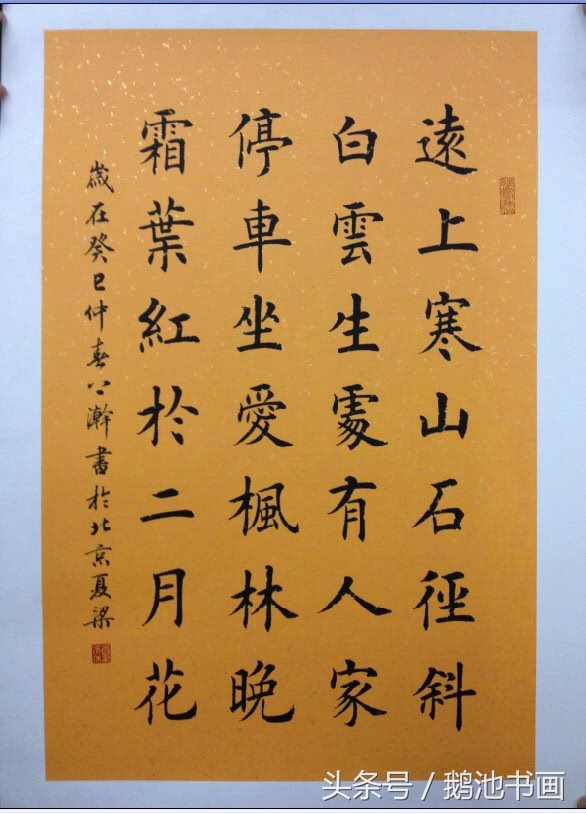 遠上寒山石徑斜
白雲生處有人家
停車坐愛楓林晚
霜葉紅於二月花
歲在癸巳仲春公瀚書於北京夏梁
头条号 / 鹅池书画